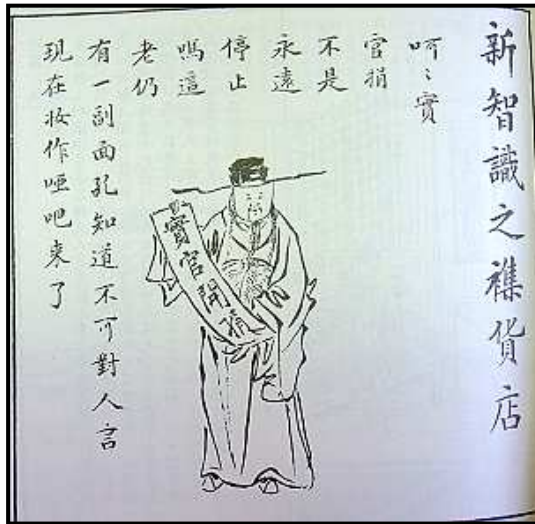 新智識之襍貨店
呵呵實
官捐
不是
永遠
停止
嗎這
老仍
有一副面孔知道不可對人言
現在妝作啞吧來了
實官開捐